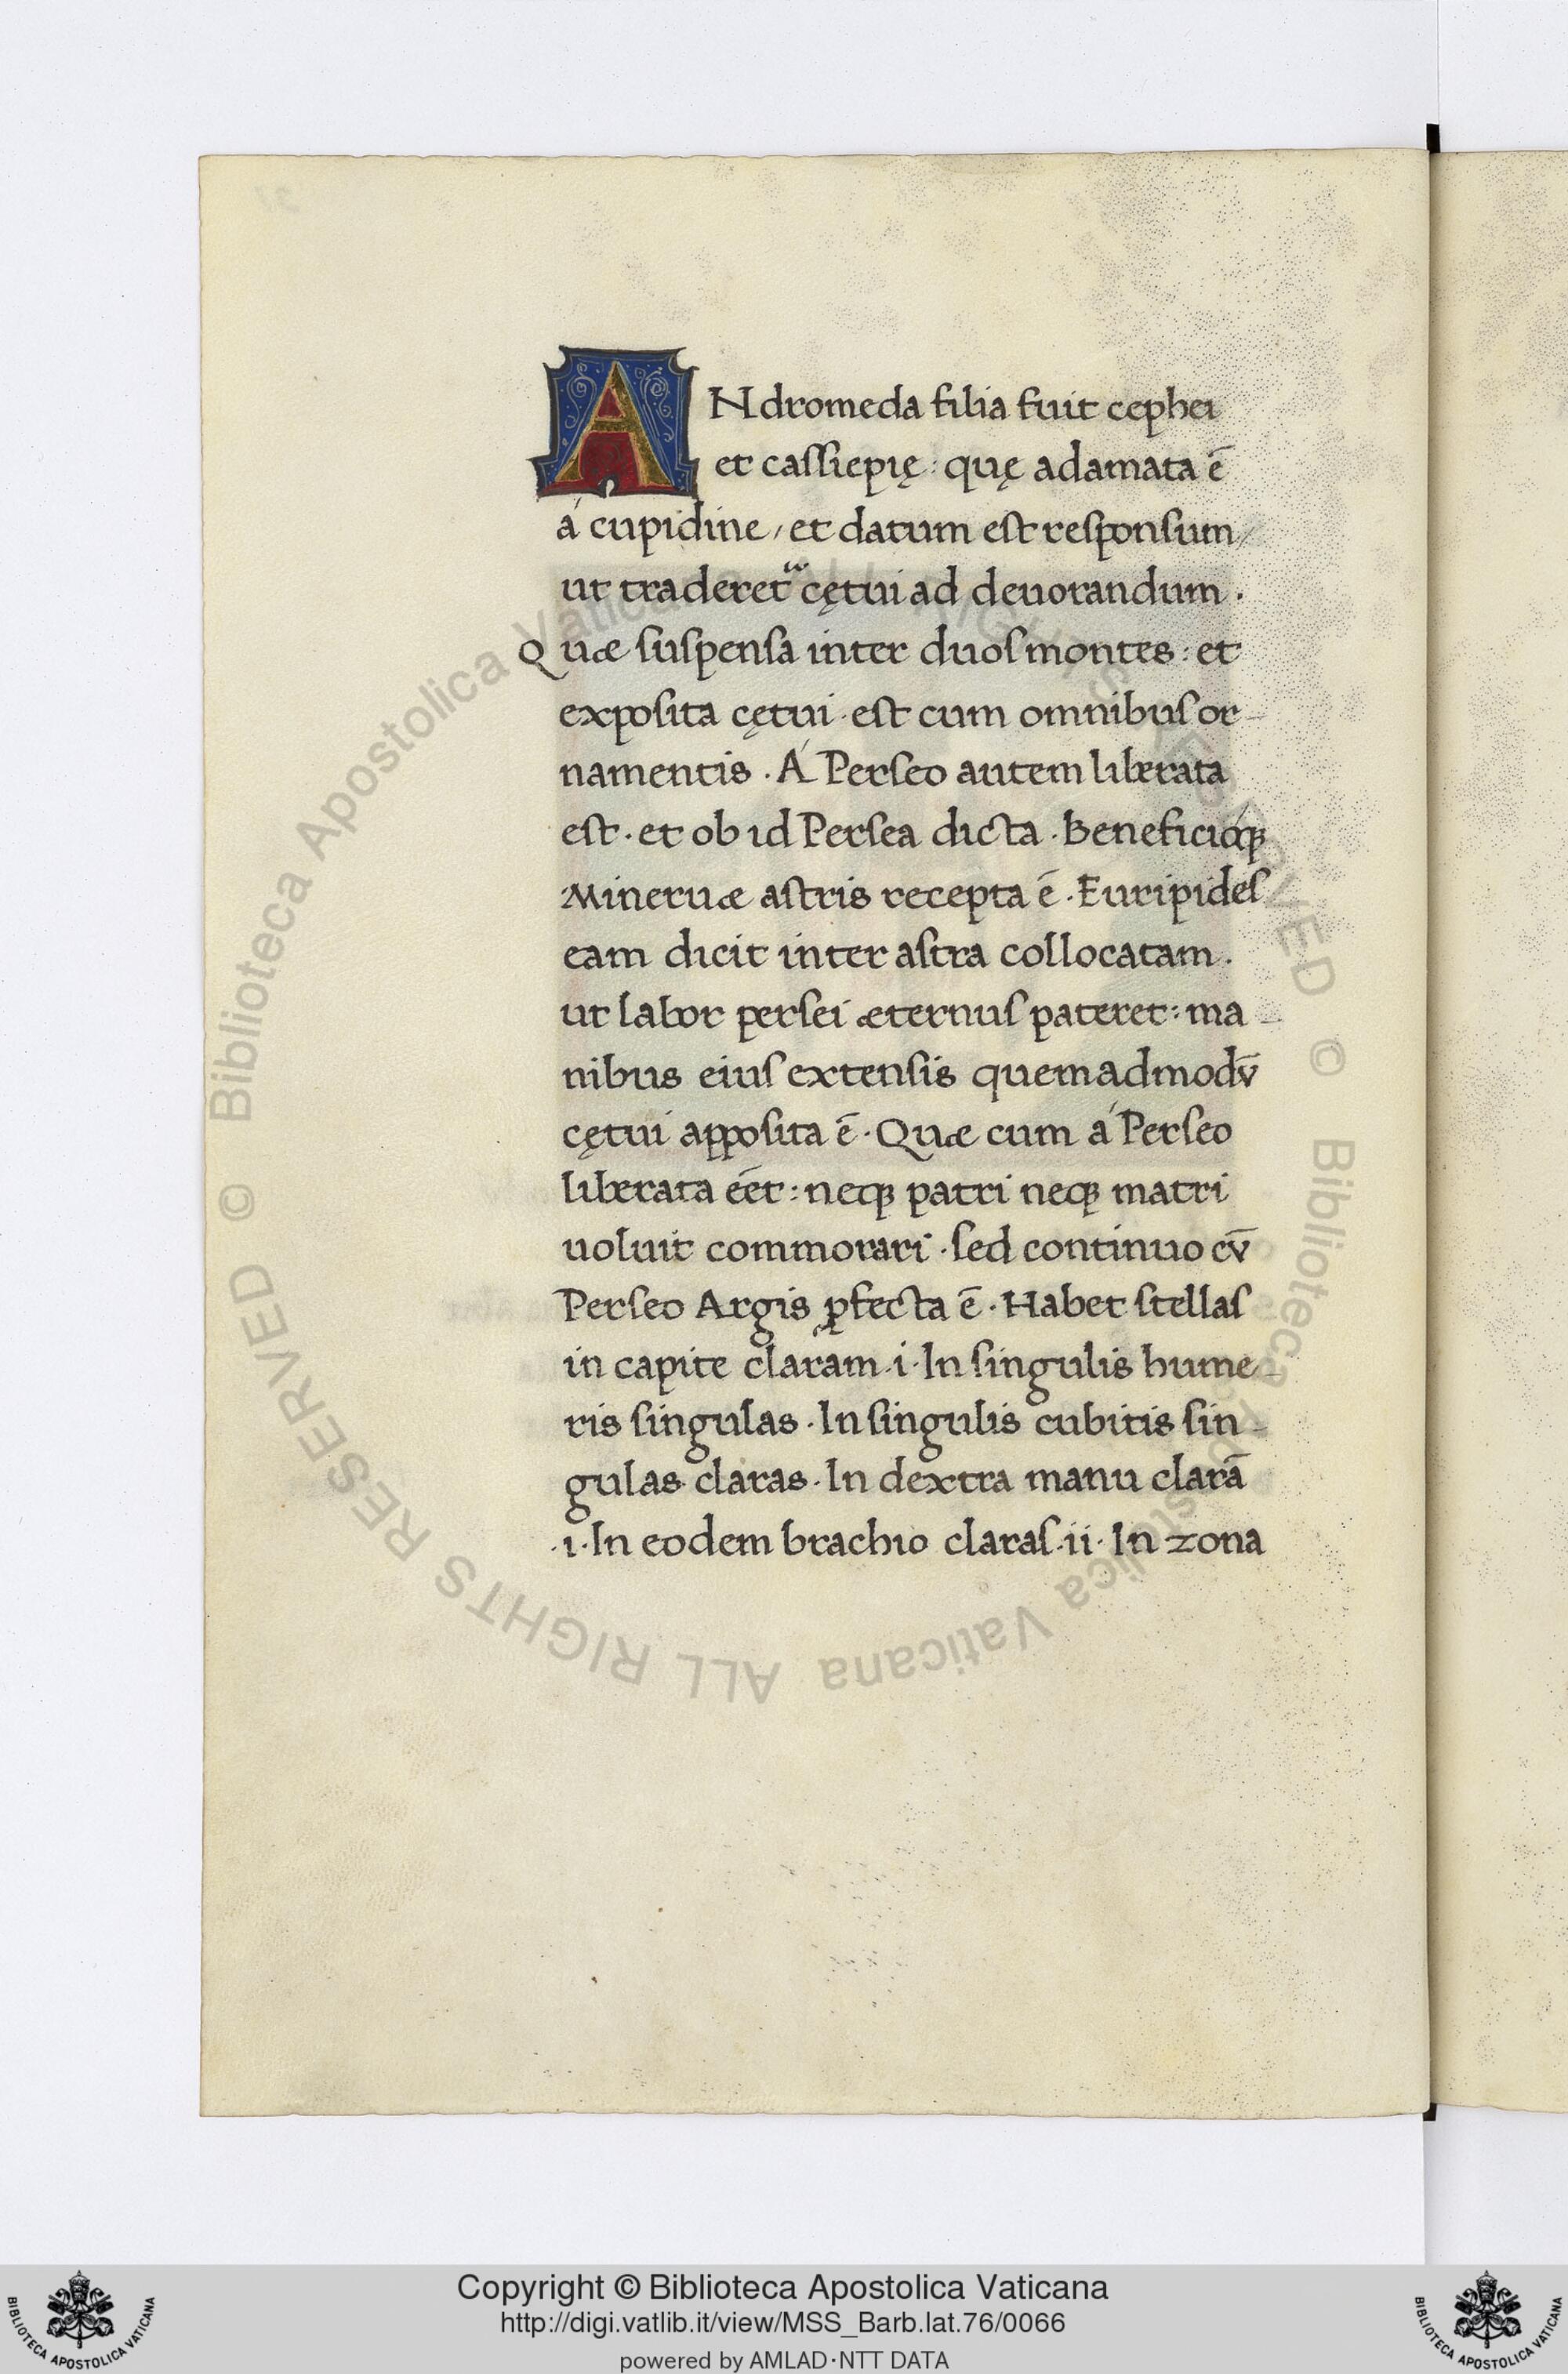 ANdromeda filia fuit cephei
et caſſiepię: quę adamata ē
á cupidine / et datum eſt reſponſum /
ut traderet᷑ cętui ad deuorandum .
Quæ ſuſpenſa inter duoſ montes : et
expoſita cętui · eſt cum omnibuſ or-
namentis . Á Perſeo autem liberata
eſt · et ob id Perſea dicta . Beneficioq́ꝫ
Mineruæ aſtris recepta ē . Euripideſ
eam dicit inter aſtra collocatam .
ut labor perſei æternuſ pateret : ma-
nibus eiuſ extenſis quemadmodv̄
cętui appoſita ē . Quæ cum á Perſeo
liberata eēt : neqꝫ patri neqꝫ matri
uoluit commorari · ſed continuo cv̄
Perſeo Argis ꝓfecta ē . Habet ſtellaſ
in capite claram · i · In ſingulis hume-
ris ſingulas . In ſingulis cubitis ſin-
gulas claras . In dextra manu clarā
· i · In eodem brachio claraſ · ii · In zona
© Biblioteca Apostolica Vaticana ALL RIGHTS RESERVED © Biblioteca Apostolica Vaticana ALL RIGHTS RESERVED
Copyright © Biblioteca Apostolica Vaticana
http://digi.vatlib.it/view/MSS_Barb.lat.76/0066
powered by AMLAD·NTT DATA
BIBLIOTECA APOSTOLICA VATICANA
BIBLIOTECA APOSTOLICA VATICANA